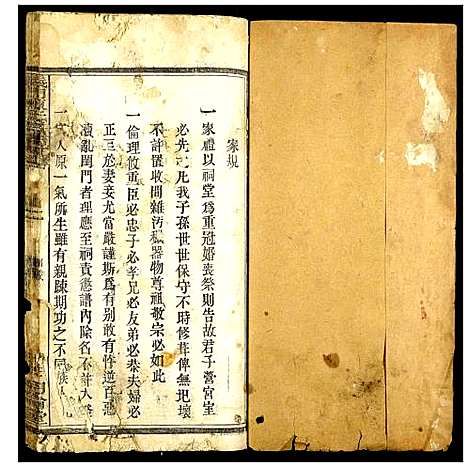 家規
一家禮以祠堂爲重冠婚喪祭則告故君子營宮室
必先之凡我子孫世世保守不時修葺俾無圮壞
不許置收閒雜汚穢器物尊祖敬宗必如此
一倫理攸重臣必忠子必孝兄必友弟必恭夫婦必
正至於妻妾尤當嚴謹斯爲有別敢有悖逆百惡
瀆亂閨門者理應至祠責懲譜內除名不許入
一人原一氣所生雖有親踈期功之不同族人